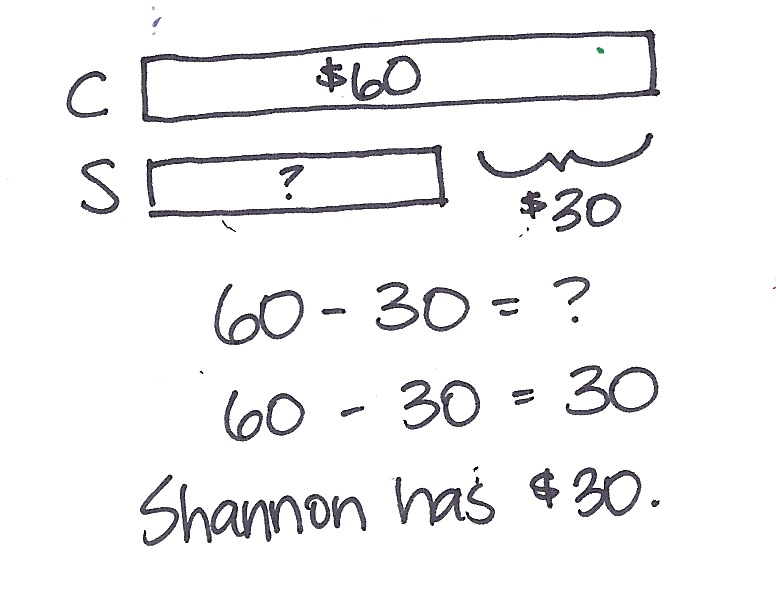 C $60
S ?
$30
60 - 30 = ?
60 - 30 = 30
Shannon has $30.